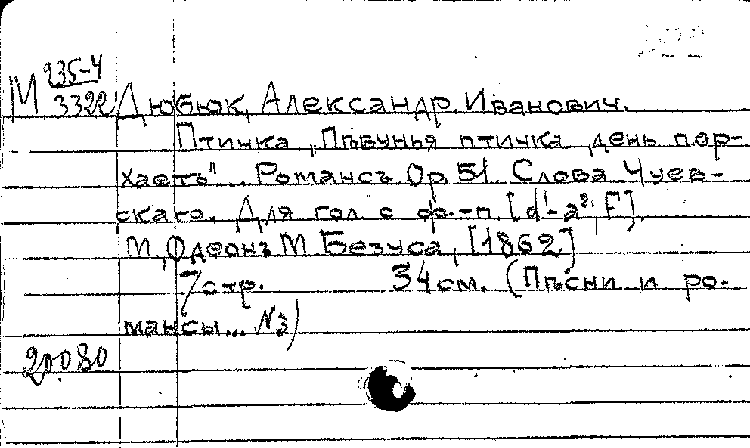 М 235-4
3322 Дюбюк, Александр Иванович.
Птичка „Пѣвунья птичка день пор-
хаетъ"... Романсъ. Op. 51. Слова Чуев-
скаго. Для гол. с ф.-п. [d¹-a², F].
М., Одеонъ М. Безуса, [1862]
7 стр. 34 см. (Пѣсни и ро-
мансы... №3)
20080